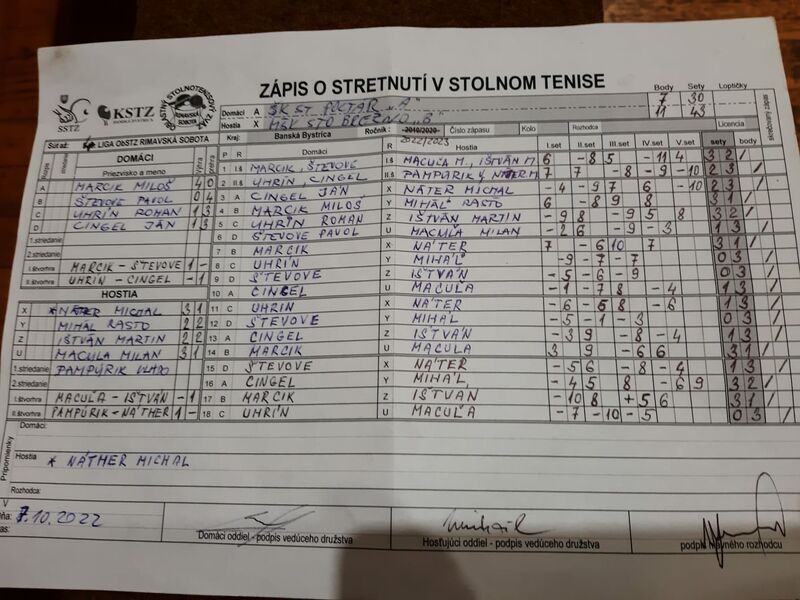 ZÁPIS O STRETNUTÍ V STOLNOM TENISE
Body Sety Loptičky
SSTZ KSTZ OBLASTNÝ STOLNOTENISOVÝ ZVÄZ RIMAVSKÁ SOBOTA
Domáci A ŠK ST POLTÁR "A" 7 30
Hostia X MŠK STO BREZNO "B" 11 43
Súťaž: LIGA ObSTZ RIMAVSKÁ SOBOTA Kraj: Banská Bystrica Ročník: 2019/2020 2022/2023 Číslo zápasu Kolo Rozhodca Licencia
DOMÁCI
Priezvisko a meno
P R R I.set II.set III.set IV.set V.set sety body
A MARCIK MILOŠ 4 0
B ŠTEVOVE PAVOL 0 4
C UHRÍN ROMAN 1 3
D CINGEL JÁN 1 3
1.striedanie
2.striedanie
I.štvorhra MARCIK - ŠTEVOVE 1 -
II.štvorhra UHRÍN - CINGEL - 1
HOSTIA
X * NÁTHER MICHAL 3 1
Y MIHÁĽ RASŤO 2 2
Z IŠTVÁN MARTIN 2 2
U MACUĽA MILAN 3 1
1.striedanie PAMPÚRIK VLADO
2.striedanie
I.štvorhra MACUĽA - IŠTVÁN - 1
II.štvorhra PAMPÚRIK - NÁTHER 1 -
1 I.š MARCIK, ŠTEVOVE I.š MACUĽA M., IŠTVÁN M. 6 -8 5 -11 4 3 2 /
2 II.š UHRÍN, CINGEL II.š 7 7 -8 -9 -10 2 3 /
3 A CINGEL JÁN X NÁTER MICHAL -4 -9 7 6 -10 2 3 /
4 B MARCIK MILOŠ Y MIHÁĽ RASŤO 6 -8 9 8 3 1 /
5 C UHRÍN ROMAN Z IŠTVÁN MARTIN -9 8 -9 5 8 3 2 /
6 D ŠTEVOVE PAVOL U MACUĽA MILAN -2 6 -9 -3 1 3 /
7 B MARCIK X NÁTER 7 -6 10 7 3 1 /
8 C UHRÍN Y MIHÁĽ -9 -7 -7 0 3 /
9 D ŠTEVOVE Z IŠTVÁN -5 -6 -9 0 3 /
10 A CINGEL U MACUĽA -1 -7 8 -4 1 3 /
11 C UHRÍN X NÁTER -6 -5 8 -6 1 3 /
12 D ŠTEVOVE Y MIHÁĽ -5 -1 -3 0 3 /
13 A CINGEL Z IŠTVÁN -3 9 -8 -4 1 3 /
14 B MARCIK U MACUĽA 3 9 -6 6 3 1 /
15 D ŠTEVOVE X NÁTER -5 6 -8 -4 1 3 /
16 A CINGEL Y MIHÁĽ -4 5 8 -6 9 3 2 /
17 B MARCIK Z IŠTVÁN -10 8 +5 6 3 1 /
18 C UHRÍN U MACUĽA -7 -10 -5 0 3 /
Pripomienky
Domáci:
Hostia * NÁTHER MICHAL
Rozhodca:
V
7.10.2022
Domáci oddiel - podpis vedúceho družstva
Hosťujúci oddiel - podpis vedúceho družstva
podpis hlavného rozhodcu